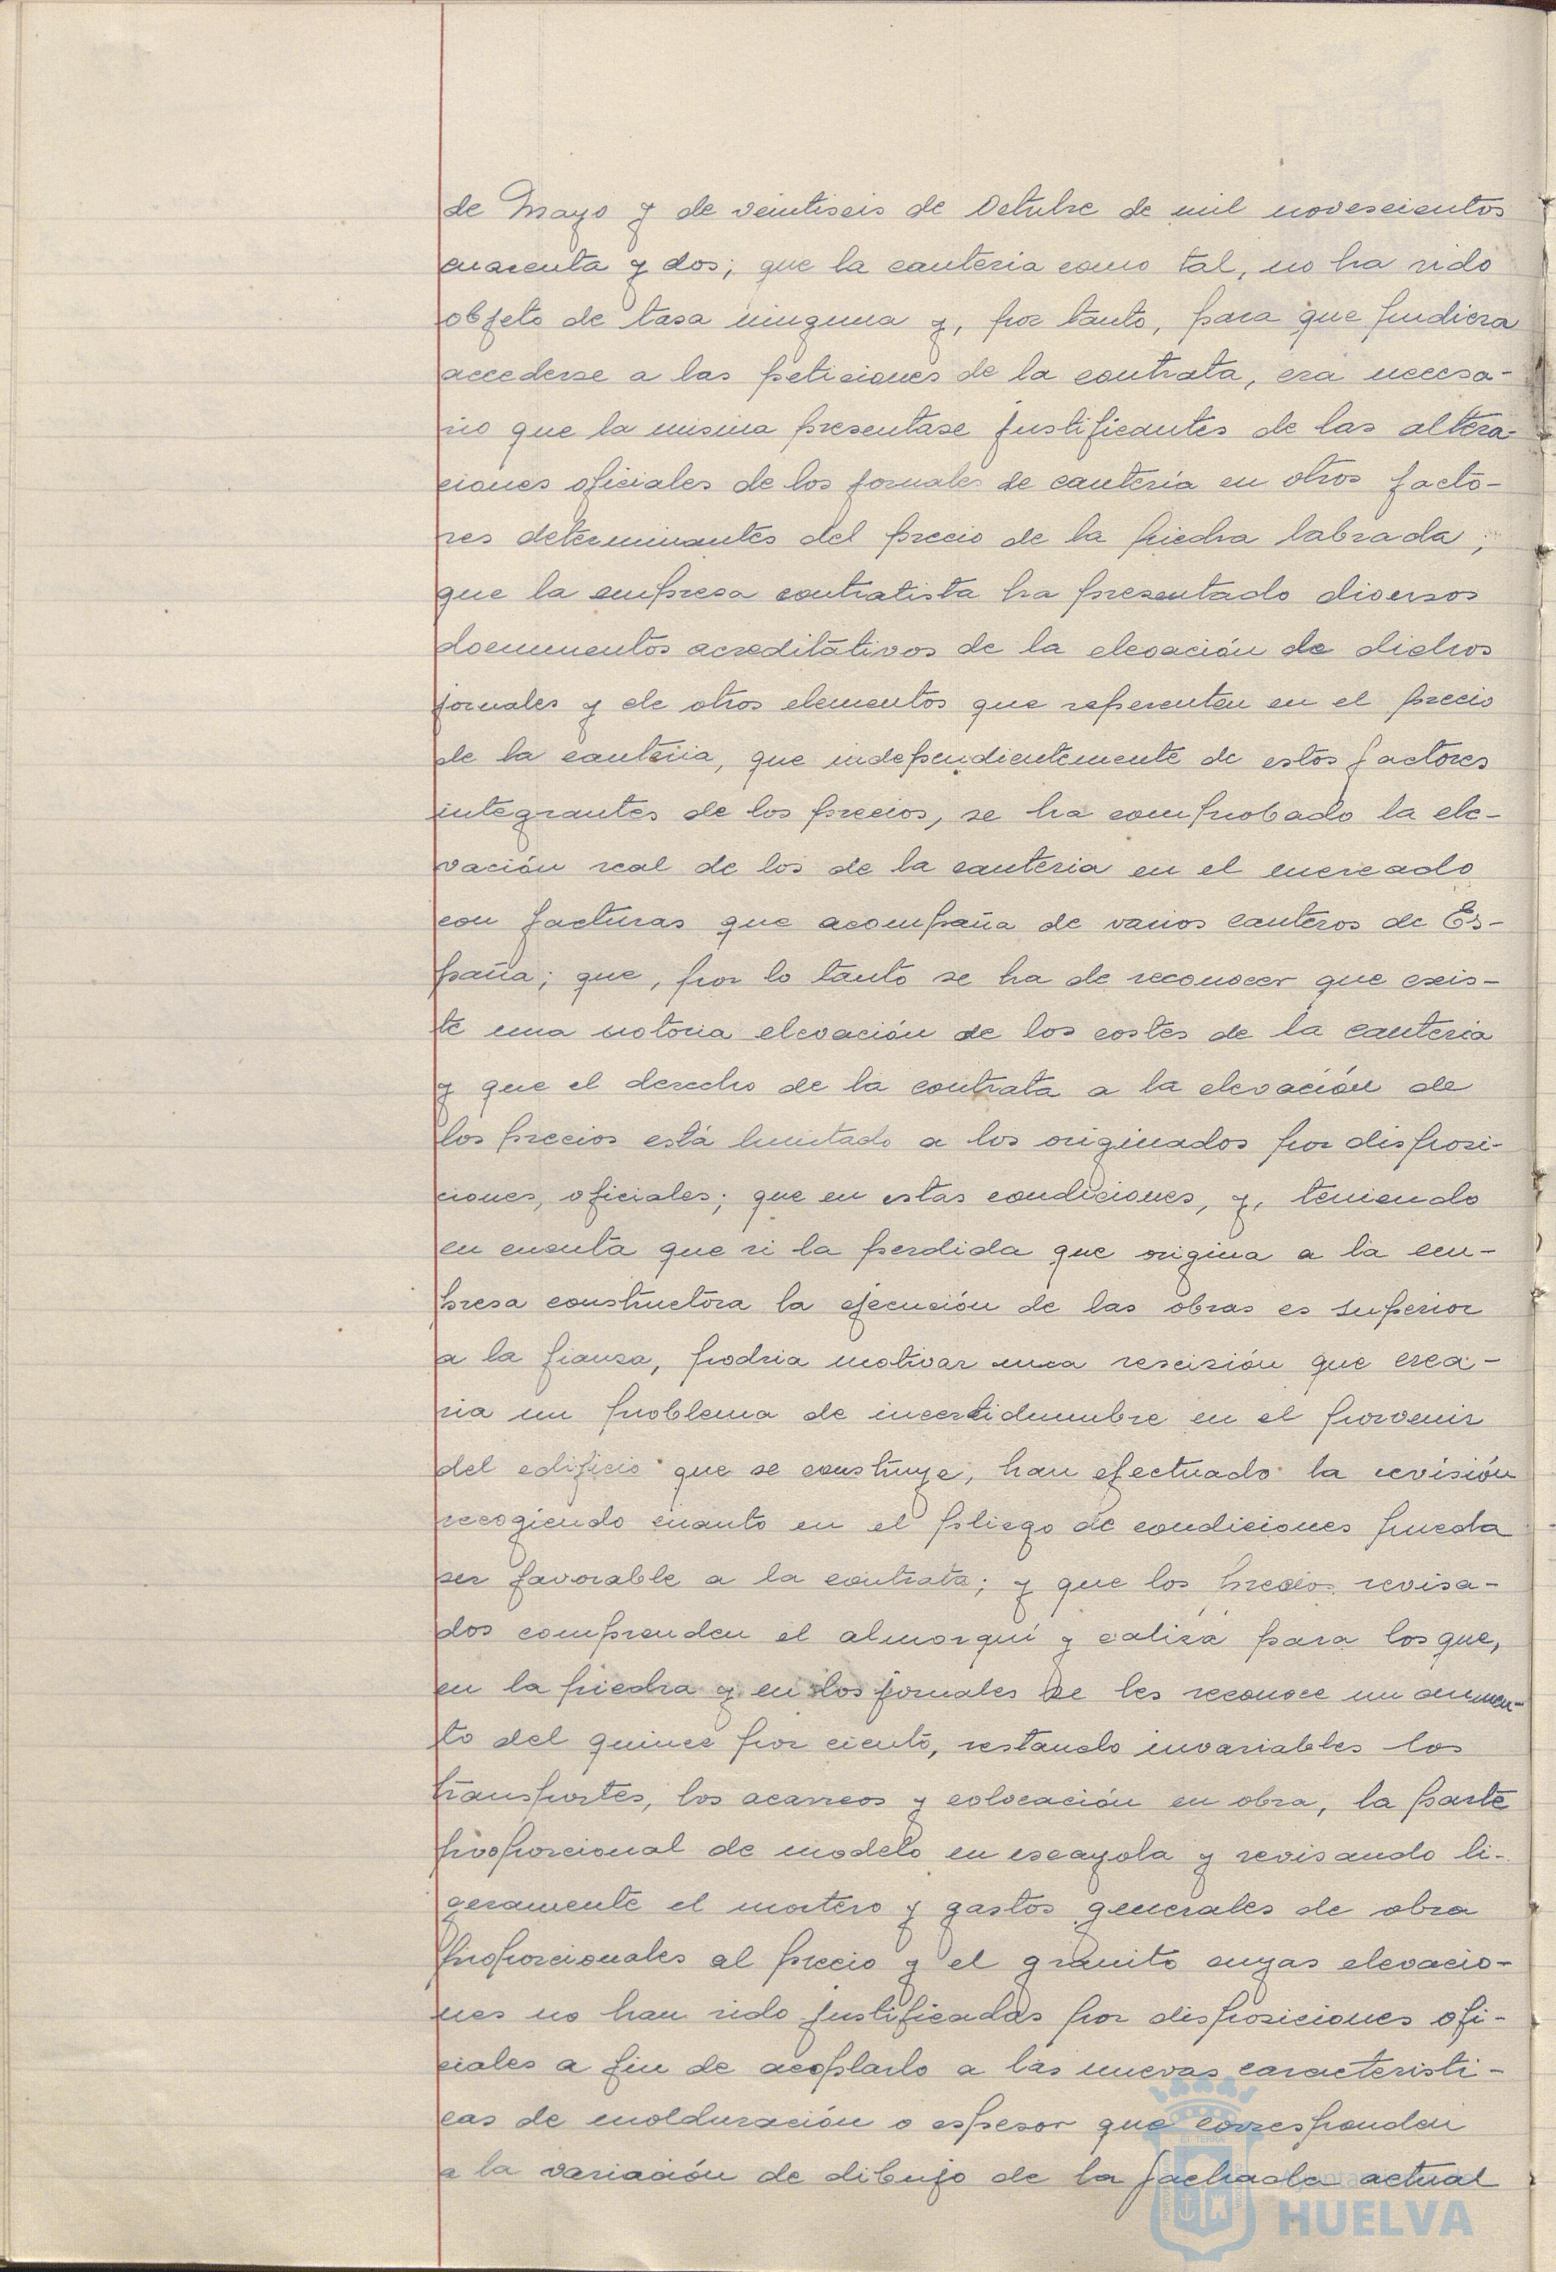 de Mayo y de veintiseis de Octubre de mil novescientos
cuarenta y dos; que la canteria como tal, no ha sido
objeto de tasa ninguna y, por tanto, para que pudiera
accederse a las peticiones de la contrata, era necesa-
rio que la misma presentase justificantes de las altera-
ciones oficiales de los jornales de cantería en otros facto-
res determinantes del precio de la piedra labrada;
que la empresa contratista ha presentado diversos
documentos acreditativos de la elevación de dichos
jornales y de otros elementos que repercuten en el precio
de la canteria, que independientemente de estos factores
integrantes de los precios, se ha comprobado la ele-
vación real de los de la canteria en el mercado
con facturas que acompaña de varios canteros de Es-
paña; que, por lo tanto se ha de reconocer que exis-
te una notoria elevación de los costes de la canteria
y que el derecho de la contrata a la elevación de
los precios está limitado a los originados por disposi-
ciones, oficiales; que en estas condiciones, y, teniendo
en cuenta que si la perdida que origina a la em-
presa constructora la ejecución de las obras es superior
a la fianza, podria motivar una rescisión que crea-
ria un problema de incertidumbre en el porvenir
del edificio que se construye, han efectuado la revisión
recogiendo cuanto en el pliego de condiciones pueda
ser favorable a la contrata; y que los precios revisa-
dos comprenden el almorquí y caliza para los que,
en la piedra y en los jornales se les reconoce un aumen-
to del quince por ciento, restando invariables los
transportes, los acarreos y colocación en obra, la parte
proporcional de modelo en escayola y revisando li-
geramente el mortero y gastos generales de obra
proporcionales al precio y el granito cuyas elevacio-
nes no han sido justificadas por disposiciones ofi-
ciales a fin de acoplarlo a las nuevas caracteristi-
cas de molduración o espesor que corresponden
a la variación de dibujo de la fachada actual
HUELVA